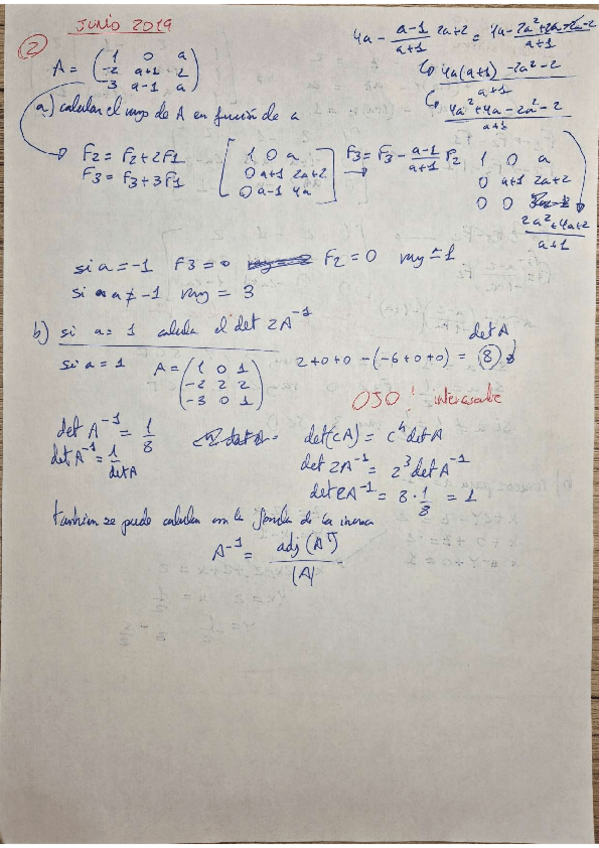 Junio 2019
2
A = ( 1 0 a
-2 a+1 2
-3 a-1 a )
4a - a-1/a+1 2a+2 = 4a - 2a²+2a-2a-2/a+1
4a(a+1) - 2a²-2/a+1
4a²+4a-2a²-2/a+1
a) calcular el rango de A en función de a
F2 = F2+2F1
F3 = F3+3F1
[ 1 0 a
0 a+1 2a+2
0 a-1 4a ]
F3 = F3 - a-1/a+1 F2
1 0 a
0 a+1 2a+2
0 0
2a²+4a+2/a+1
si a = -1 F3 = 0 F2 = 0 rng = 1
si a ≠ -1 rng = 3
b) si a = 1 calcula el det 2A⁻¹
si a = 1 A = ( 1 0 1
-2 2 2
-3 0 1 )
2+0+0 - (-6+0+0) = 8
det A
OJO! interesante
det A⁻¹ = 1/8
det A⁻¹ = 1/det A
det(cA) = cʰ det A
det 2A⁻¹ = 2³ det A⁻¹
det 2A⁻¹ = 8 · 1/8 = 1
también se puede calcular con la fórmula de la inversa
A⁻¹ = adj (Aᵗ)/(A)